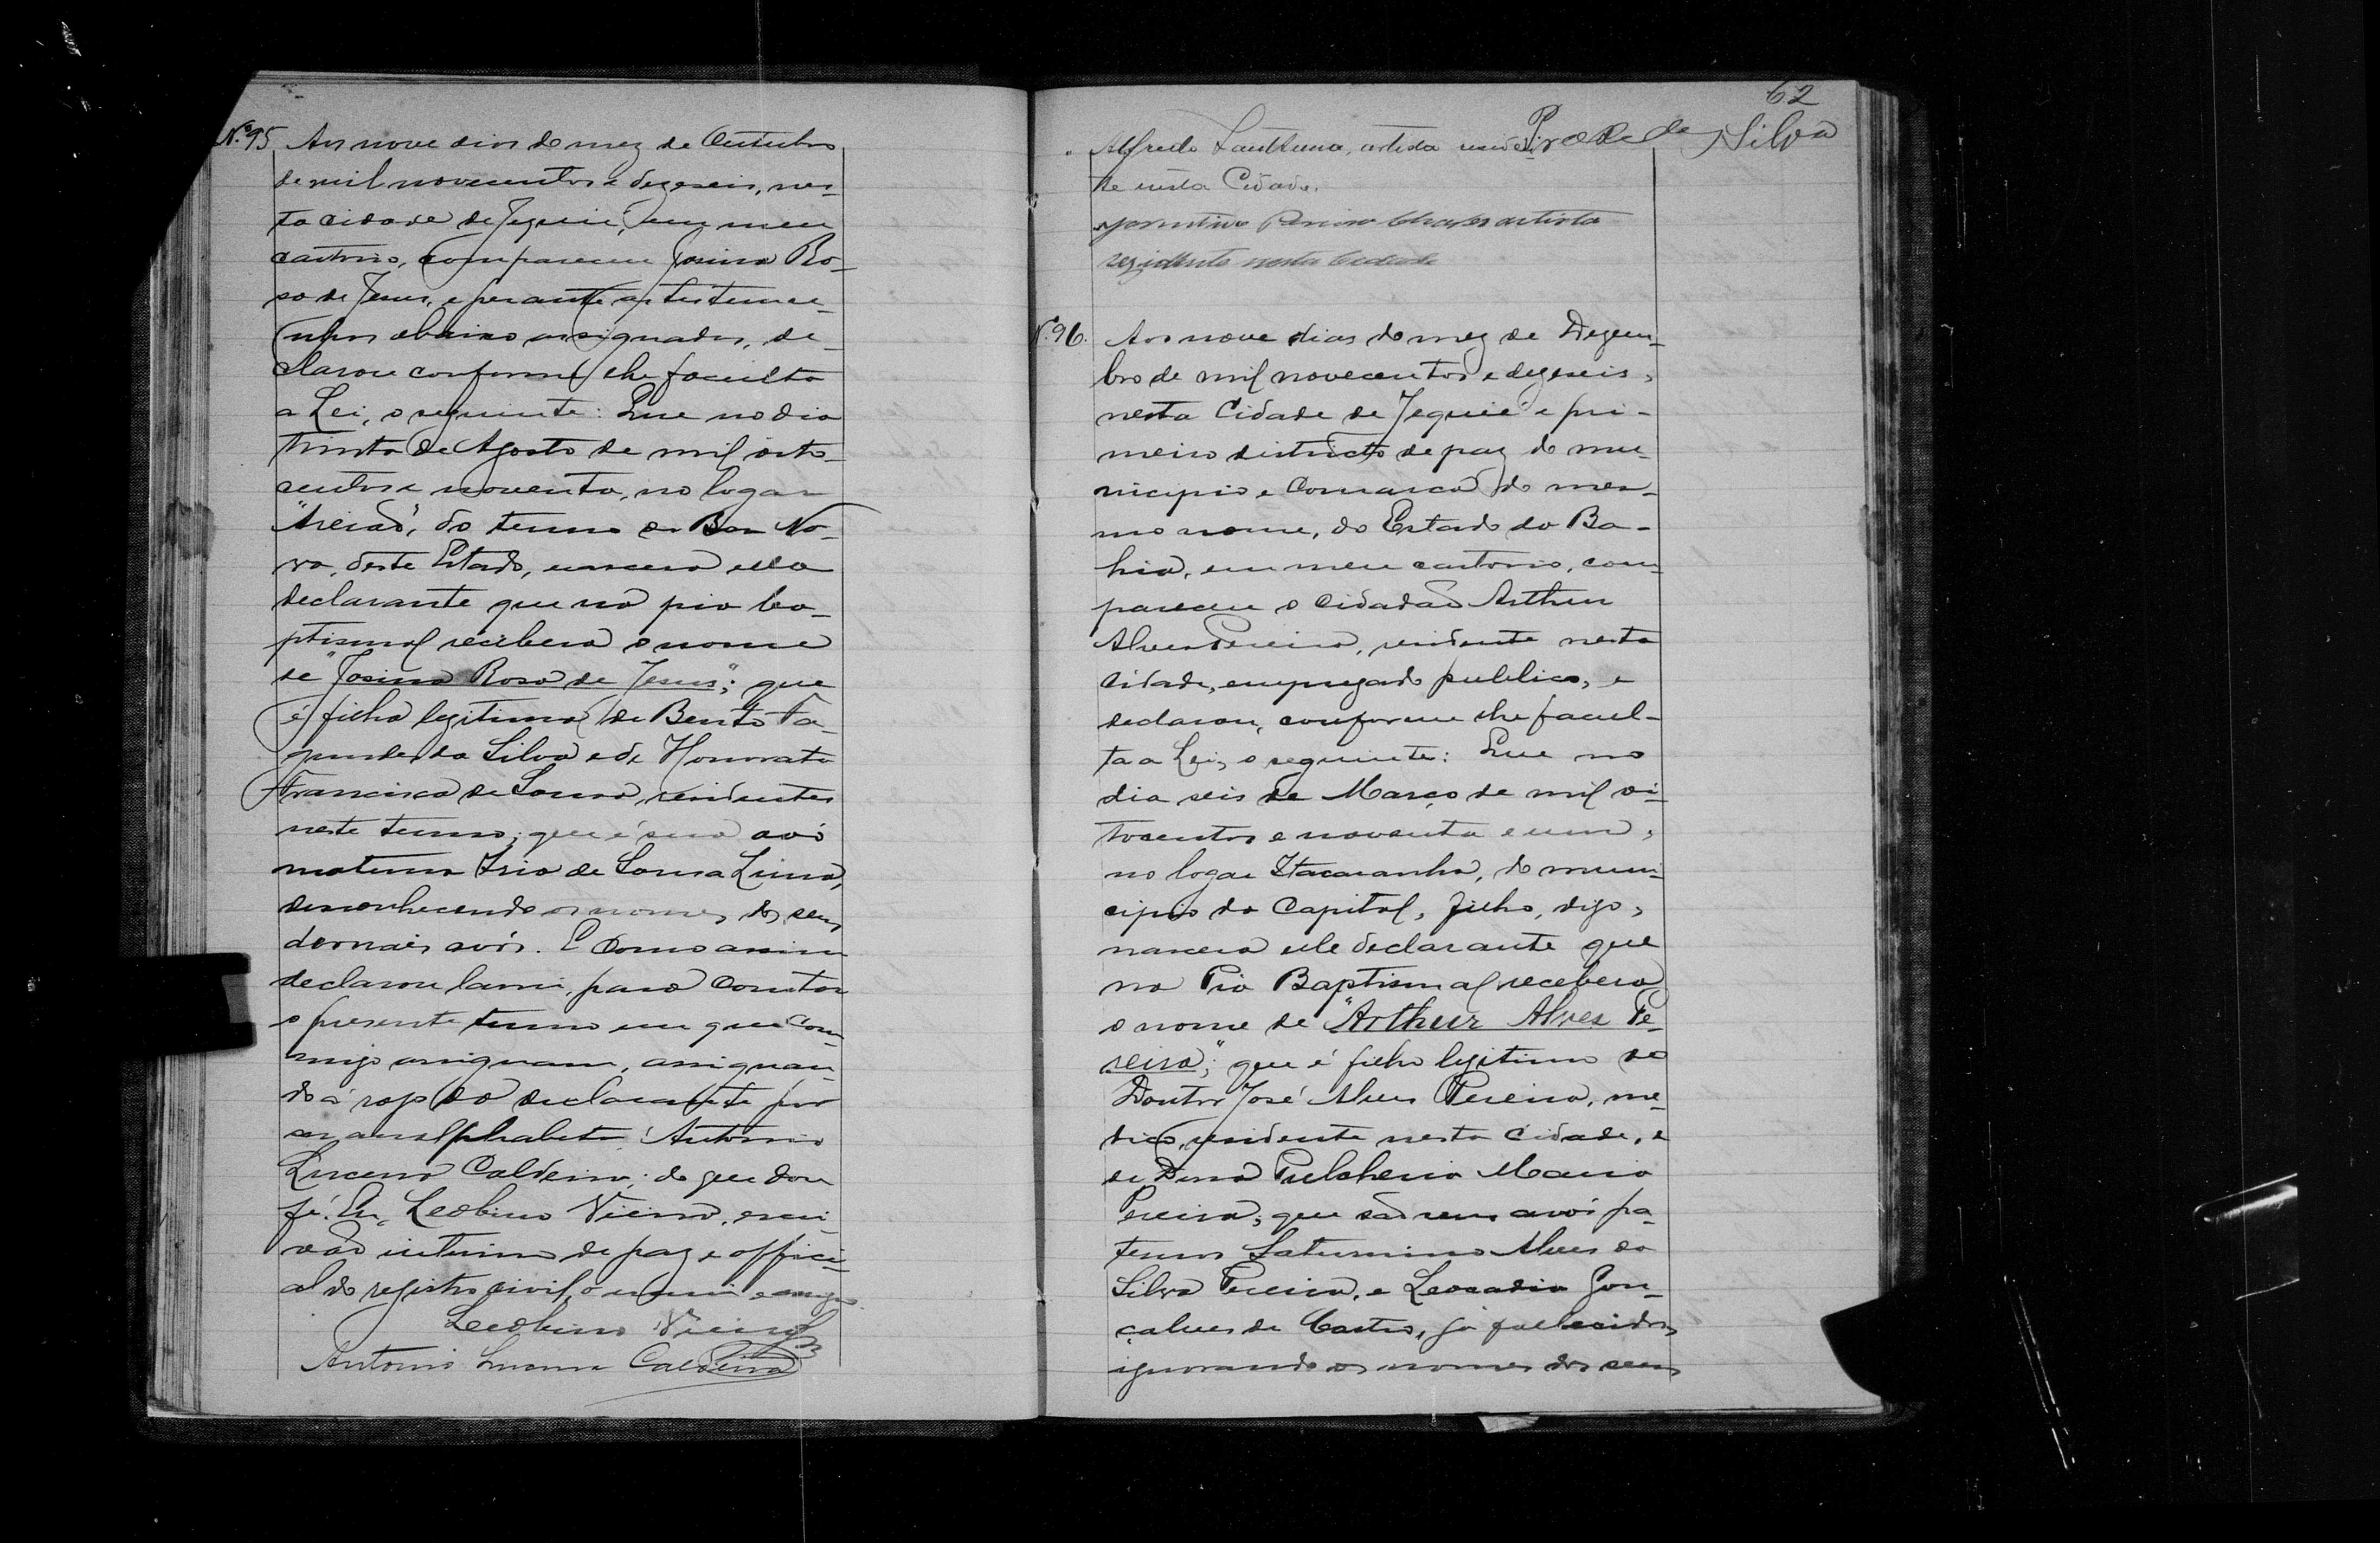 Nº 95 Aos nove dias do mez de Outubro
de mil novecentos e dezeseis, nes-
ta cidade de Jequié, em meu
cartorio, compareceu Josina Ro-
sa de Jesus, e perante as testemu-
nhas abaixo assignadas, de-
clarou conforme lhe faculta
a Lei, o seguinte: Que no dia
trinta de Agosto de mil oito-
centos e noventa, no logar
"Areião", do termo de Boa No-
va, deste Estado, nascera ella
declarante que na pia ba-
ptismal recebera o nome
de "Josina Rosa de Jesus"; que
é filha legitima de Bento Fa-
gundes da Silva e de Honorata
Francisca de Sousa, residentes
neste termo; que é sua avó
materna de Sousa Lima,
desconhecendo os nomes dos seus
demais avós. E como assim
declarou lavrei, para constar
o presente termo em que com-
migo assignam, assignan-
do á rogo da declarante por
ser analphabeta Antonio
Lucena Caldeira; do que dou
fé. Eu, Leobino Vieira, escri-
vão interino de paz e offici-
al do registro civil, o escrevi e assigno.
Leobino Vieira
Antonio Lucena Caldeira
62
Alfredo Sant'Anna, artista residen-
te nesta Cidade.
Prado da Silva
artista
rezidente nesta Cidade
Nº 96. Aos nove dias do mez de Dezem-
bro de mil novecentos e dezeseis,
nesta Cidade de Jequié e pri-
meiro districto de paz do mu-
nicipio e Comarca do mes-
mo nome, do Estado da Ba-
hia, em meu cartorio, com-
pareceu o cidadão Arthur
Alves Pereira, residente nesta
cidade, empregado publico, e
declarou, conforme lhe facul-
ta a Lei, o seguinte: Que no
dia seis de Março de mil oi-
tocentos e noventa e um,
no logar Itacaranha, do muni-
cipio da Capital, filho, digo,
nascera elle declarante que
na Pia Baptismal recebera
o nome de "Arthur Alves Pe-
reira"; que é filho legitimo do
Doutor José Alves Pereira, me-
dico, residente nesta Cidade, e
de Dona Pulcheria Maria
Pereira; que são seus avós pa-
ternos Saturnino Alves da
Silva Pereira, e Leocadia Gon-
çalves de Castro, já fallecidos
ignorando os nomes dos seus